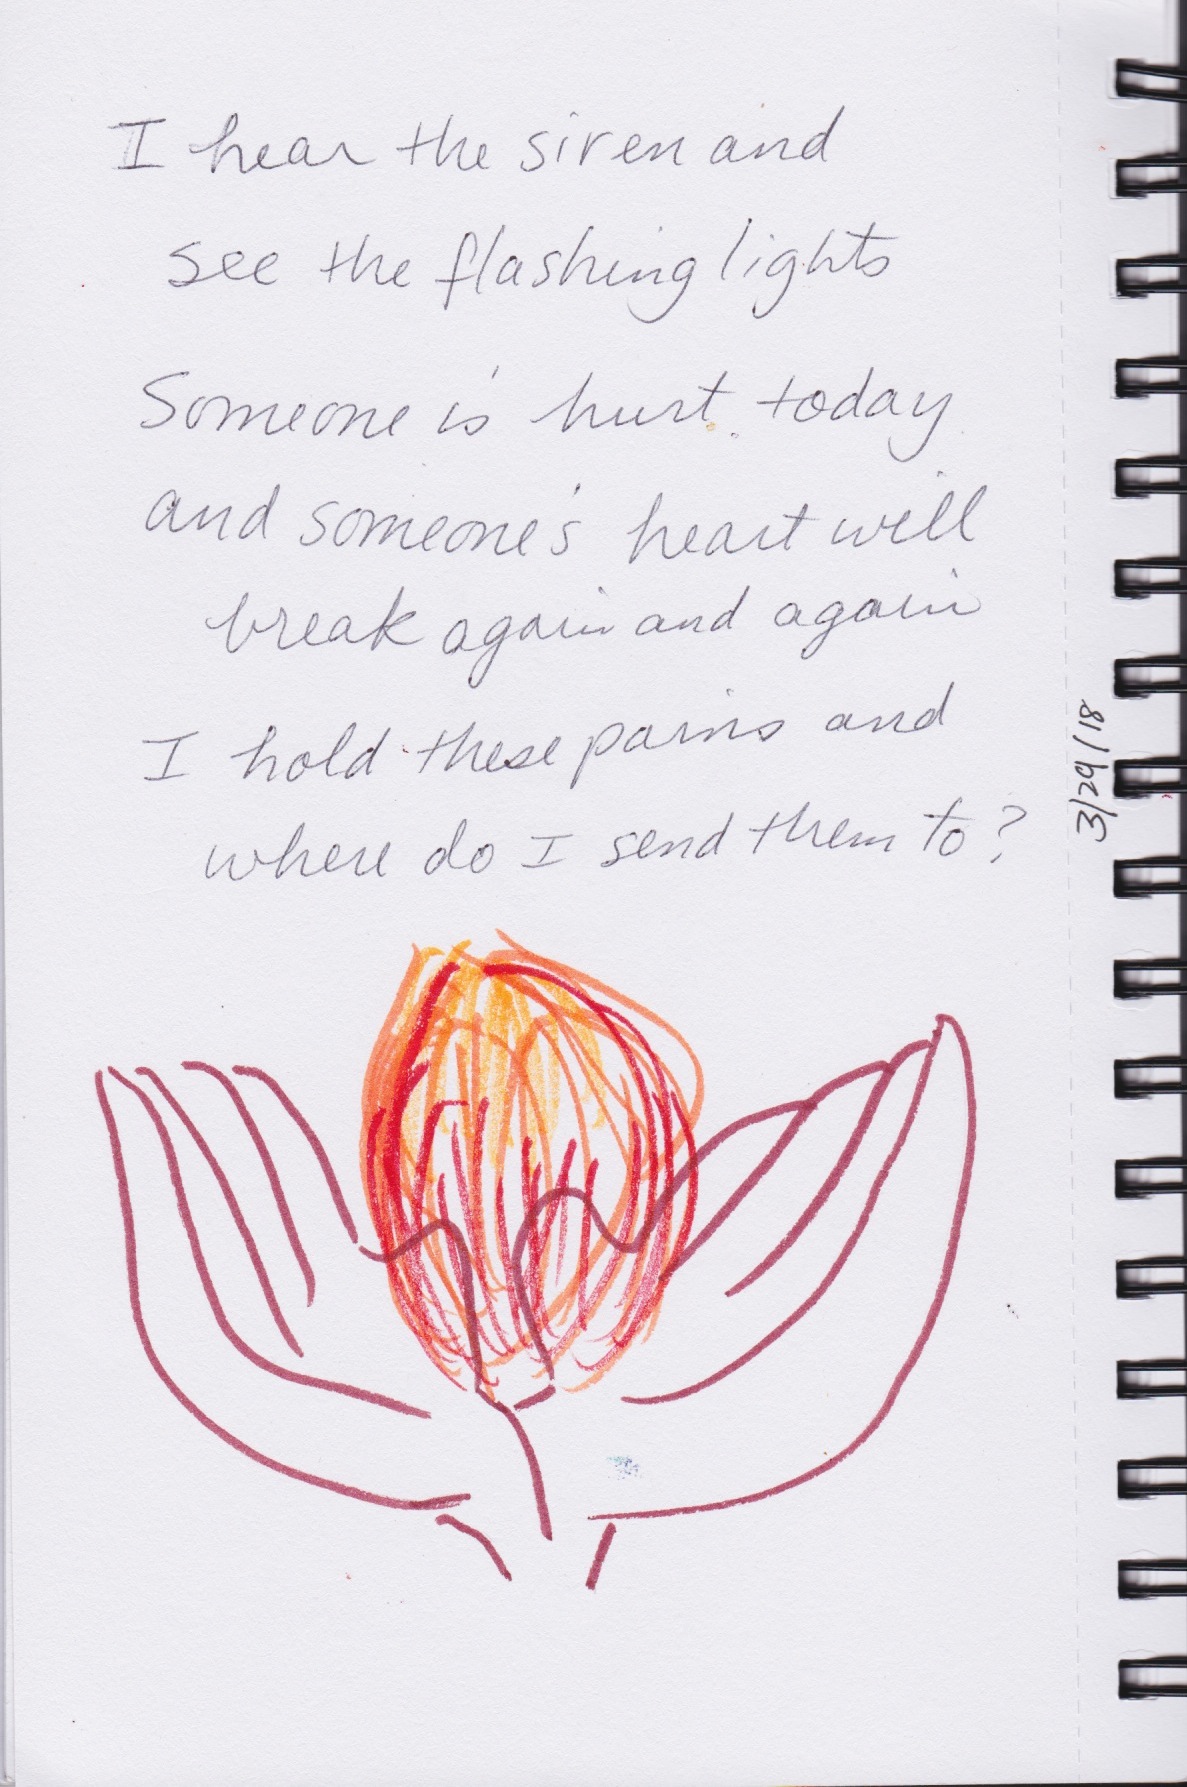 I hear the siren and
see the flashing lights
Someone is hurt today
and someone's heart will
break again and again
I hold these pains and
where do I send them to?
3/29/18